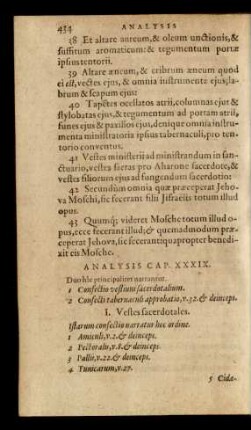 434 ANALYSIS
38 Et altare aureum, & oleum unctionis, &
suffitum aromaticum: & tegumentum portæ
ipsius tentorii.
39 Altare æneum, & cribrum æneum quod
ei est, vectes ejus, & omnia instrumenta ejus; la-
brum & scapum ejus:
40 Tapetes ocellatos atrii, columnas ejus &
stylobatas ejus, & tegumentum ad portam atrii,
funes ejus & paxillos ejus, denique omnia instru-
menta ministratoria ipsius tabernaculi, pro ten-
torio conventus.
41 Vestes ministerii ad ministrandum in san-
ctuario, vestes sacras pro Aharone sacerdote, &
vestes filiorum ejus ad fungendum sacerdotio:
42 Secundùm omnia quæ præceperat Jeho-
va Moschi, sic fecerant filii Jisraëlis totum illud
opus.
43 Quumq; videret Mosche totum illud o-
pus, ecce fecerant illud; & quemadmodum præ-
ceperat Jehova, sic fecerant: quapropter benedi-
xit eis Mosche.
ANALYSIS CAP. XXXIX.
Duo hîc principaliter narrantur.
1 Confectio vestium sacerdotalium.
2 Confecti tabernaculi approbatio, v. 32. & deinceps.
I. Vestes sacerdotales.
Istarum confectio narratur hoc ordine.
1 Amiculi, v. 2. & deinceps.
2 Pectoralis, v. 8. & deinceps.
3 Pallii, v. 22. & deinceps.
4 Tunicarum, v. 27.
5 Cida-